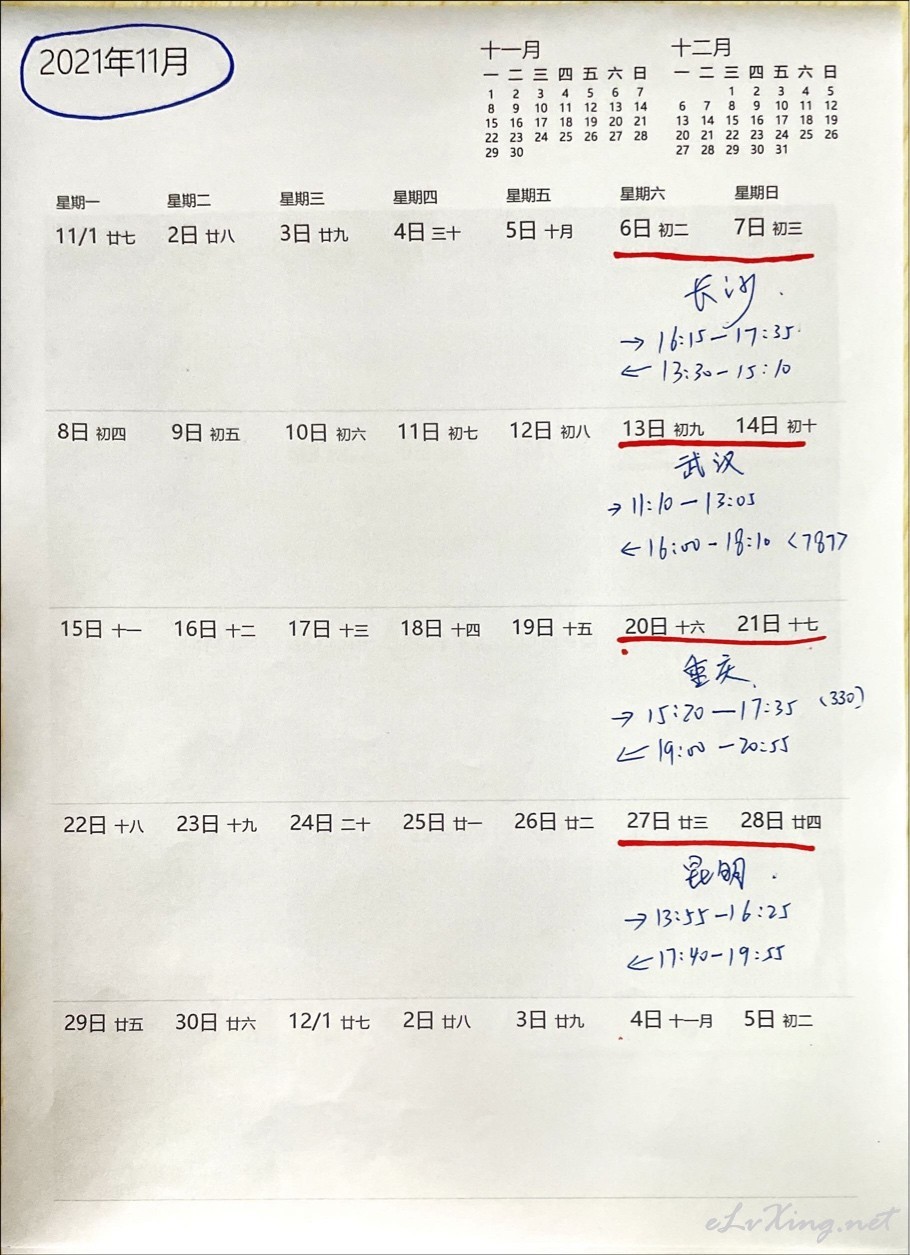 2021年11月
十一月
一 二 三 四 五 六 日
1 2 3 4 5 6 7
8 9 10 11 12 13 14
15 16 17 18 19 20 21
22 23 24 25 26 27 28
29 30
十二月
一 二 三 四 五 六 日
1 2 3 4 5
6 7 8 9 10 11 12
13 14 15 16 17 18 19
20 21 22 23 24 25 26
27 28 29 30 31
星期一 星期二 星期三 星期四 星期五 星期六 星期日
11/1 廿七 2日 廿八 3日 廿九 4日 三十 5日 十月 6日 初二 7日 初三
长沙
→ 16:15—17:35
← 13:30—15:10
8日 初四 9日 初五 10日 初六 11日 初七 12日 初八 13日 初九 14日 初十
武汉
→ 11:10—13:05
← 16:00—18:10 <787>
15日 十一 16日 十二 17日 十三 18日 十四 19日 十五 20日 十六 21日 十七
重庆
→ 15:20—17:35 (330)
← 19:00—20:55
22日 十八 23日 十九 24日 二十 25日 廿一 26日 廿二 27日 廿三 28日 廿四
昆明
→ 13:55—16:25
← 17:40—19:55
29日 廿五 30日 廿六 12/1 廿七 2日 廿八 3日 廿九 4日 十一月 5日 初二
eLvXing.net